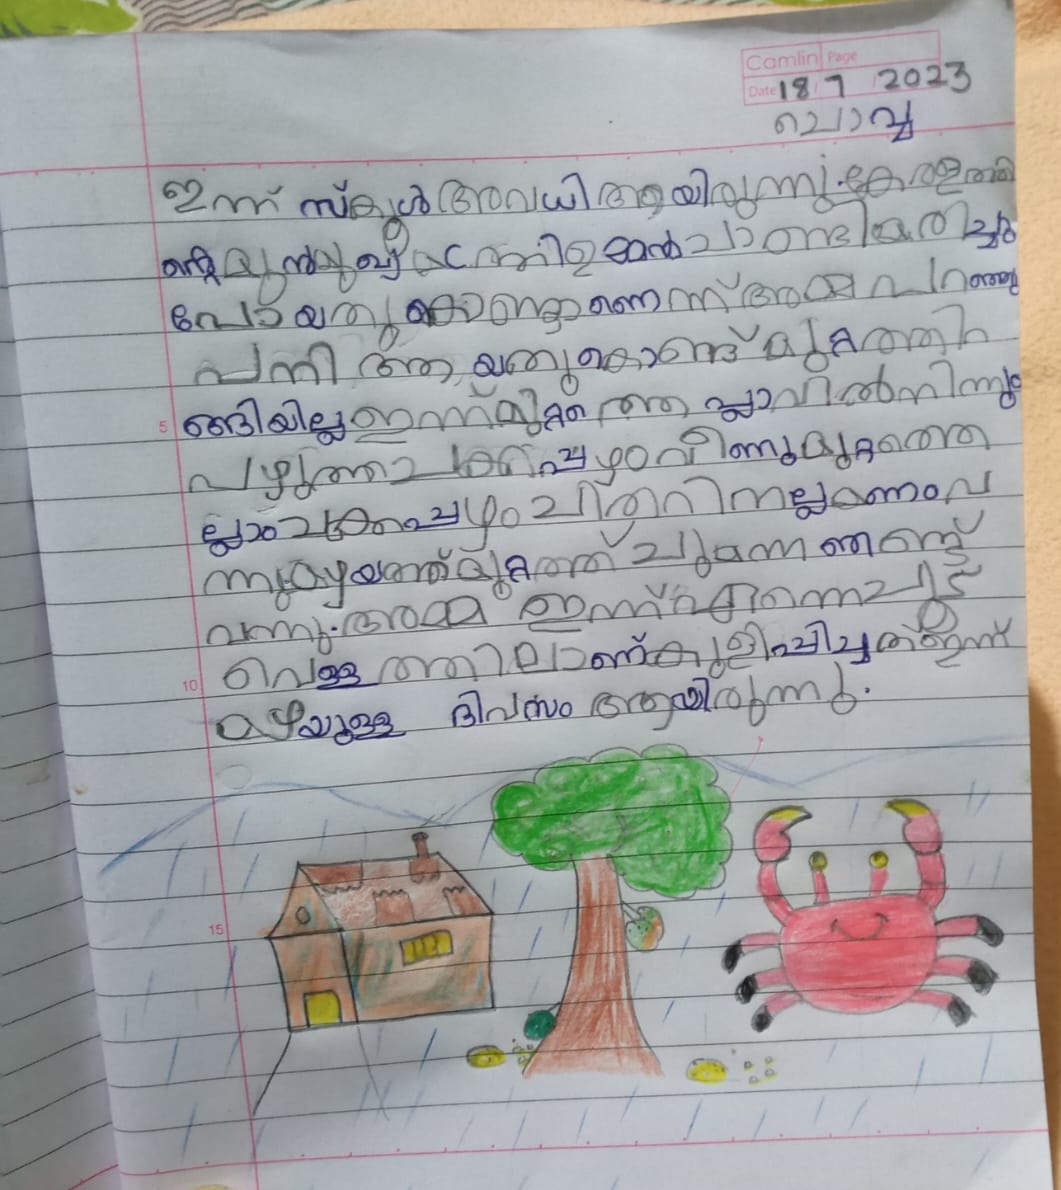 Camlin Page
Date 18 7 2023
ചൊവ്വ
ഇന്ന് സ്കൂൾ അവധി ആയിരുന്നു. കേരളത്തി
ന്റെ മുൻ മുഖ്യമന്ത്രി ഉമ്മൻ ചാണ്ടി മരിച്ചു
പോയതു കൊണ്ടാണെന്ന് അമ്മ പറഞ്ഞു
പനി ആയതുകൊണ്ട് മുറ്റത്തിറ
ങ്ങിയില്ല ഇന്ന് മുറ്റത്തെ പ്ലാവിൽ നിന്നും
പഴുത്ത ചക്കപ്പഴം വീണു മുറ്റത്തെ
ല്ലാം ചക്കപ്പഴം ചിതറി നല്ല മണം വ
ന്നു മഴയത്ത് മുറ്റത്ത് ചുവന്ന ഞണ്ട്
വന്നു. അമ്മ ഇന്ന് എന്നെ ചൂട്
വെള്ളത്തിലാണ് കുളിപ്പിച്ചത് ഇന്ന്
മഴയുള്ള ദിവസം ആയിരുന്നു.
5
10
15